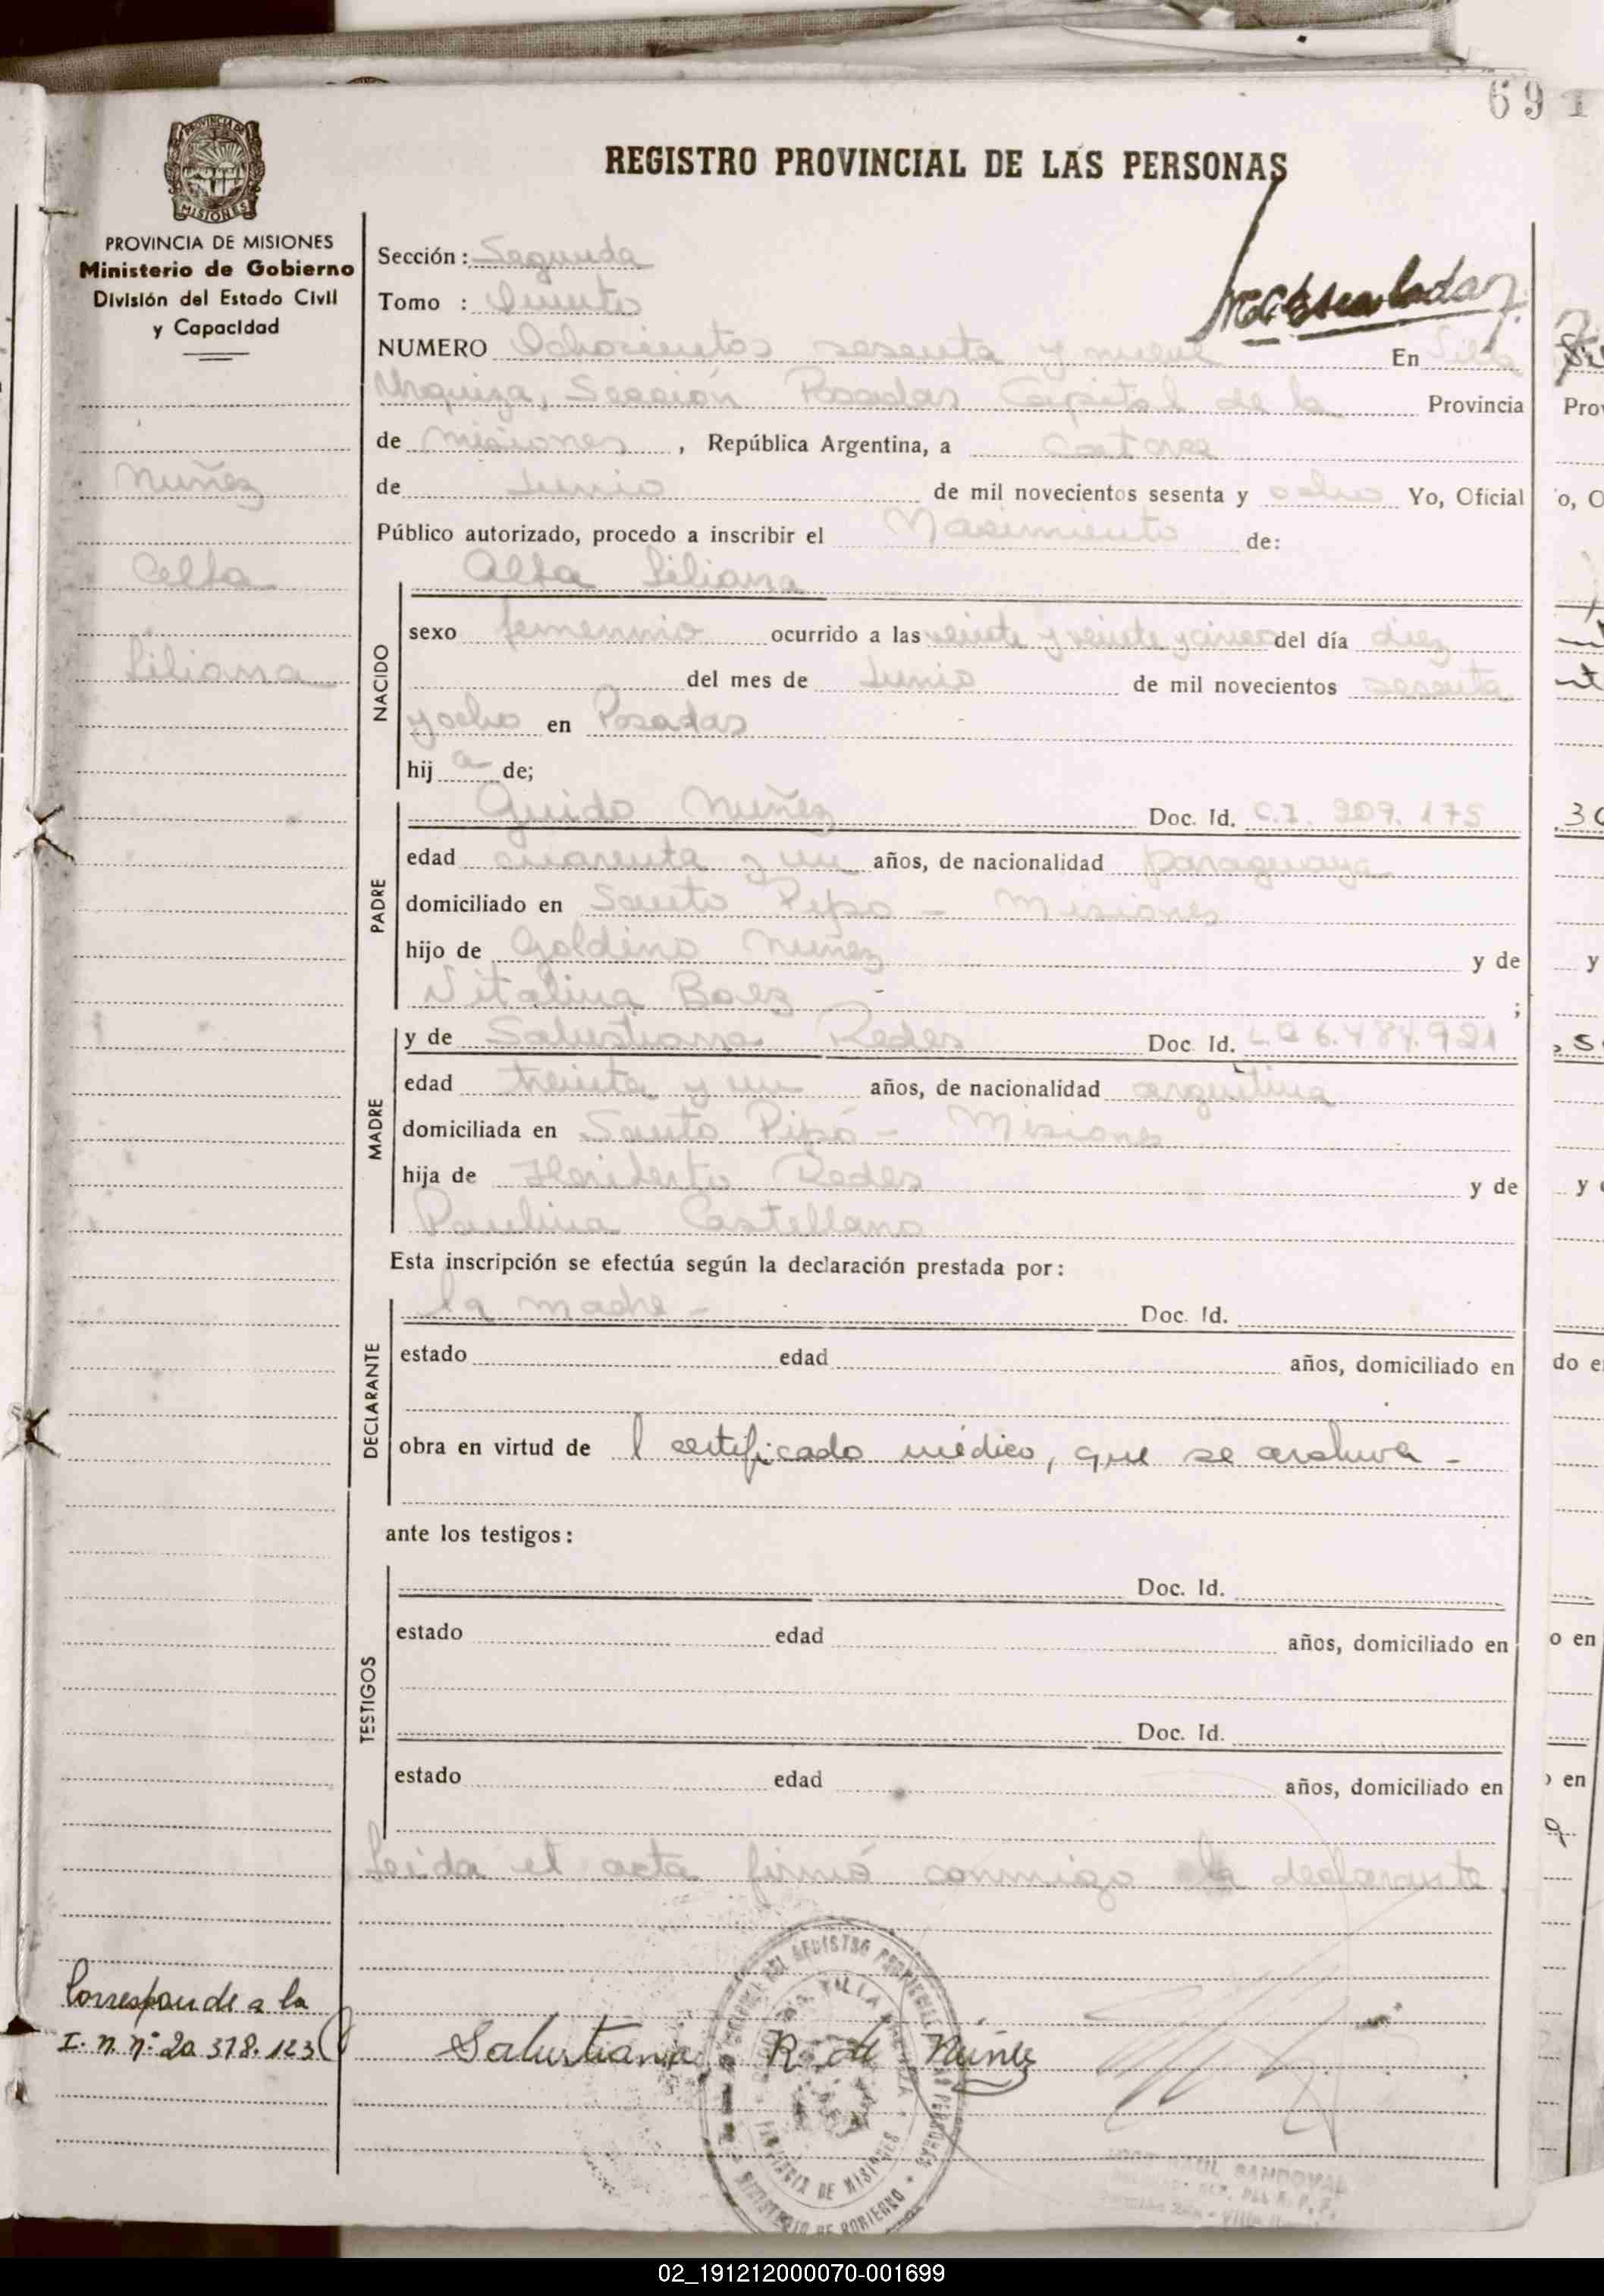 691
REGISTRO PROVINCIAL DE LAS PERSONAS
PROVINCIA DE MISIONES
Ministerio de Gobierno
División del Estado Civil
y Capacidad
Sección: Segunda
Tomo : Quinto
NUMERO Ochocientos sesenta y nueve En Villa
Urquiza, Sección Posadas Capital de la Provincia
de Misiones, República Argentina, a Catorce
de Junio de mil novecientos sesenta y ocho Yo, Oficial
Público autorizado, procedo a inscribir el Nacimiento de:
Nuñez
Alba
Liliana
NACIDO
Alba Liliana
sexo femenino ocurrido a las veinte y veinte y cinco del día diez
del mes de Junio de mil novecientos sesenta
y ocho en Posadas
hija de;
PADRE
Guido Nuñez Doc. Id. C.I. 309.175
edad cuarenta y un años, de nacionalidad paraguaya
domiciliado en Santo Pipo - Misiones
hijo de Goldino Nuñez y de
Vitalina Baez ;
MADRE
y de Salustiana Redes Doc. Id. L.C 6.484.921
edad treinta y un años, de nacionalidad argentina
domiciliada en Santo Pipó - Misiones
hija de Heriberto Redes y de
Paulina Castellano
Esta inscripción se efectúa según la declaración prestada por:
DECLARANTE
la madre - Doc. Id.
estado edad años, domiciliado en
obra en virtud de l certificado médico, que se archiva -
ante los testigos:
TESTIGOS
Doc. Id.
estado edad años, domiciliado en
Doc. Id.
estado edad años, domiciliado en
Leida el acta firmó conmigo la declarante
Corresponde a la
I. N. N° 20 378.123
Salustiana R. de Núñez
SANDOVAL
PROVINCIA DE MISIONES
MINISTERIO DE GOBIERNO
02_191212000070-001699